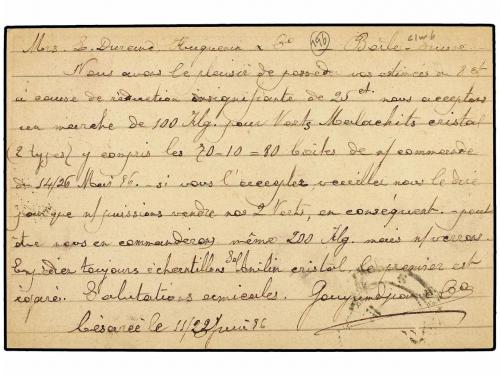 Mrs. L. Durand, Huguenin & Cie (196) Bâle-Suisse
Nous avons le plaisir de posséder vos estimées du 8 ct
à cause de réduction insignifiante de 25 ct. nous acceptons
un marché de 100 Klg. pour Verts Malachits cristal
(2 types) y compris les 70-10=80 boîtes de n/ commande
du 14/26 Mars 86 - si vous l'acceptez veuillez nous le dire
pour que n/ puissions vendre nos 2 Verts, en conséquent - peut
être nous en commanderons même 200 Klg. mais n/ verrons.
Expédiez toujours échantillons Saf Anilin cristal, le premier est
égaré. Salutations amicales.
Césarée le 11/23 Juin 86